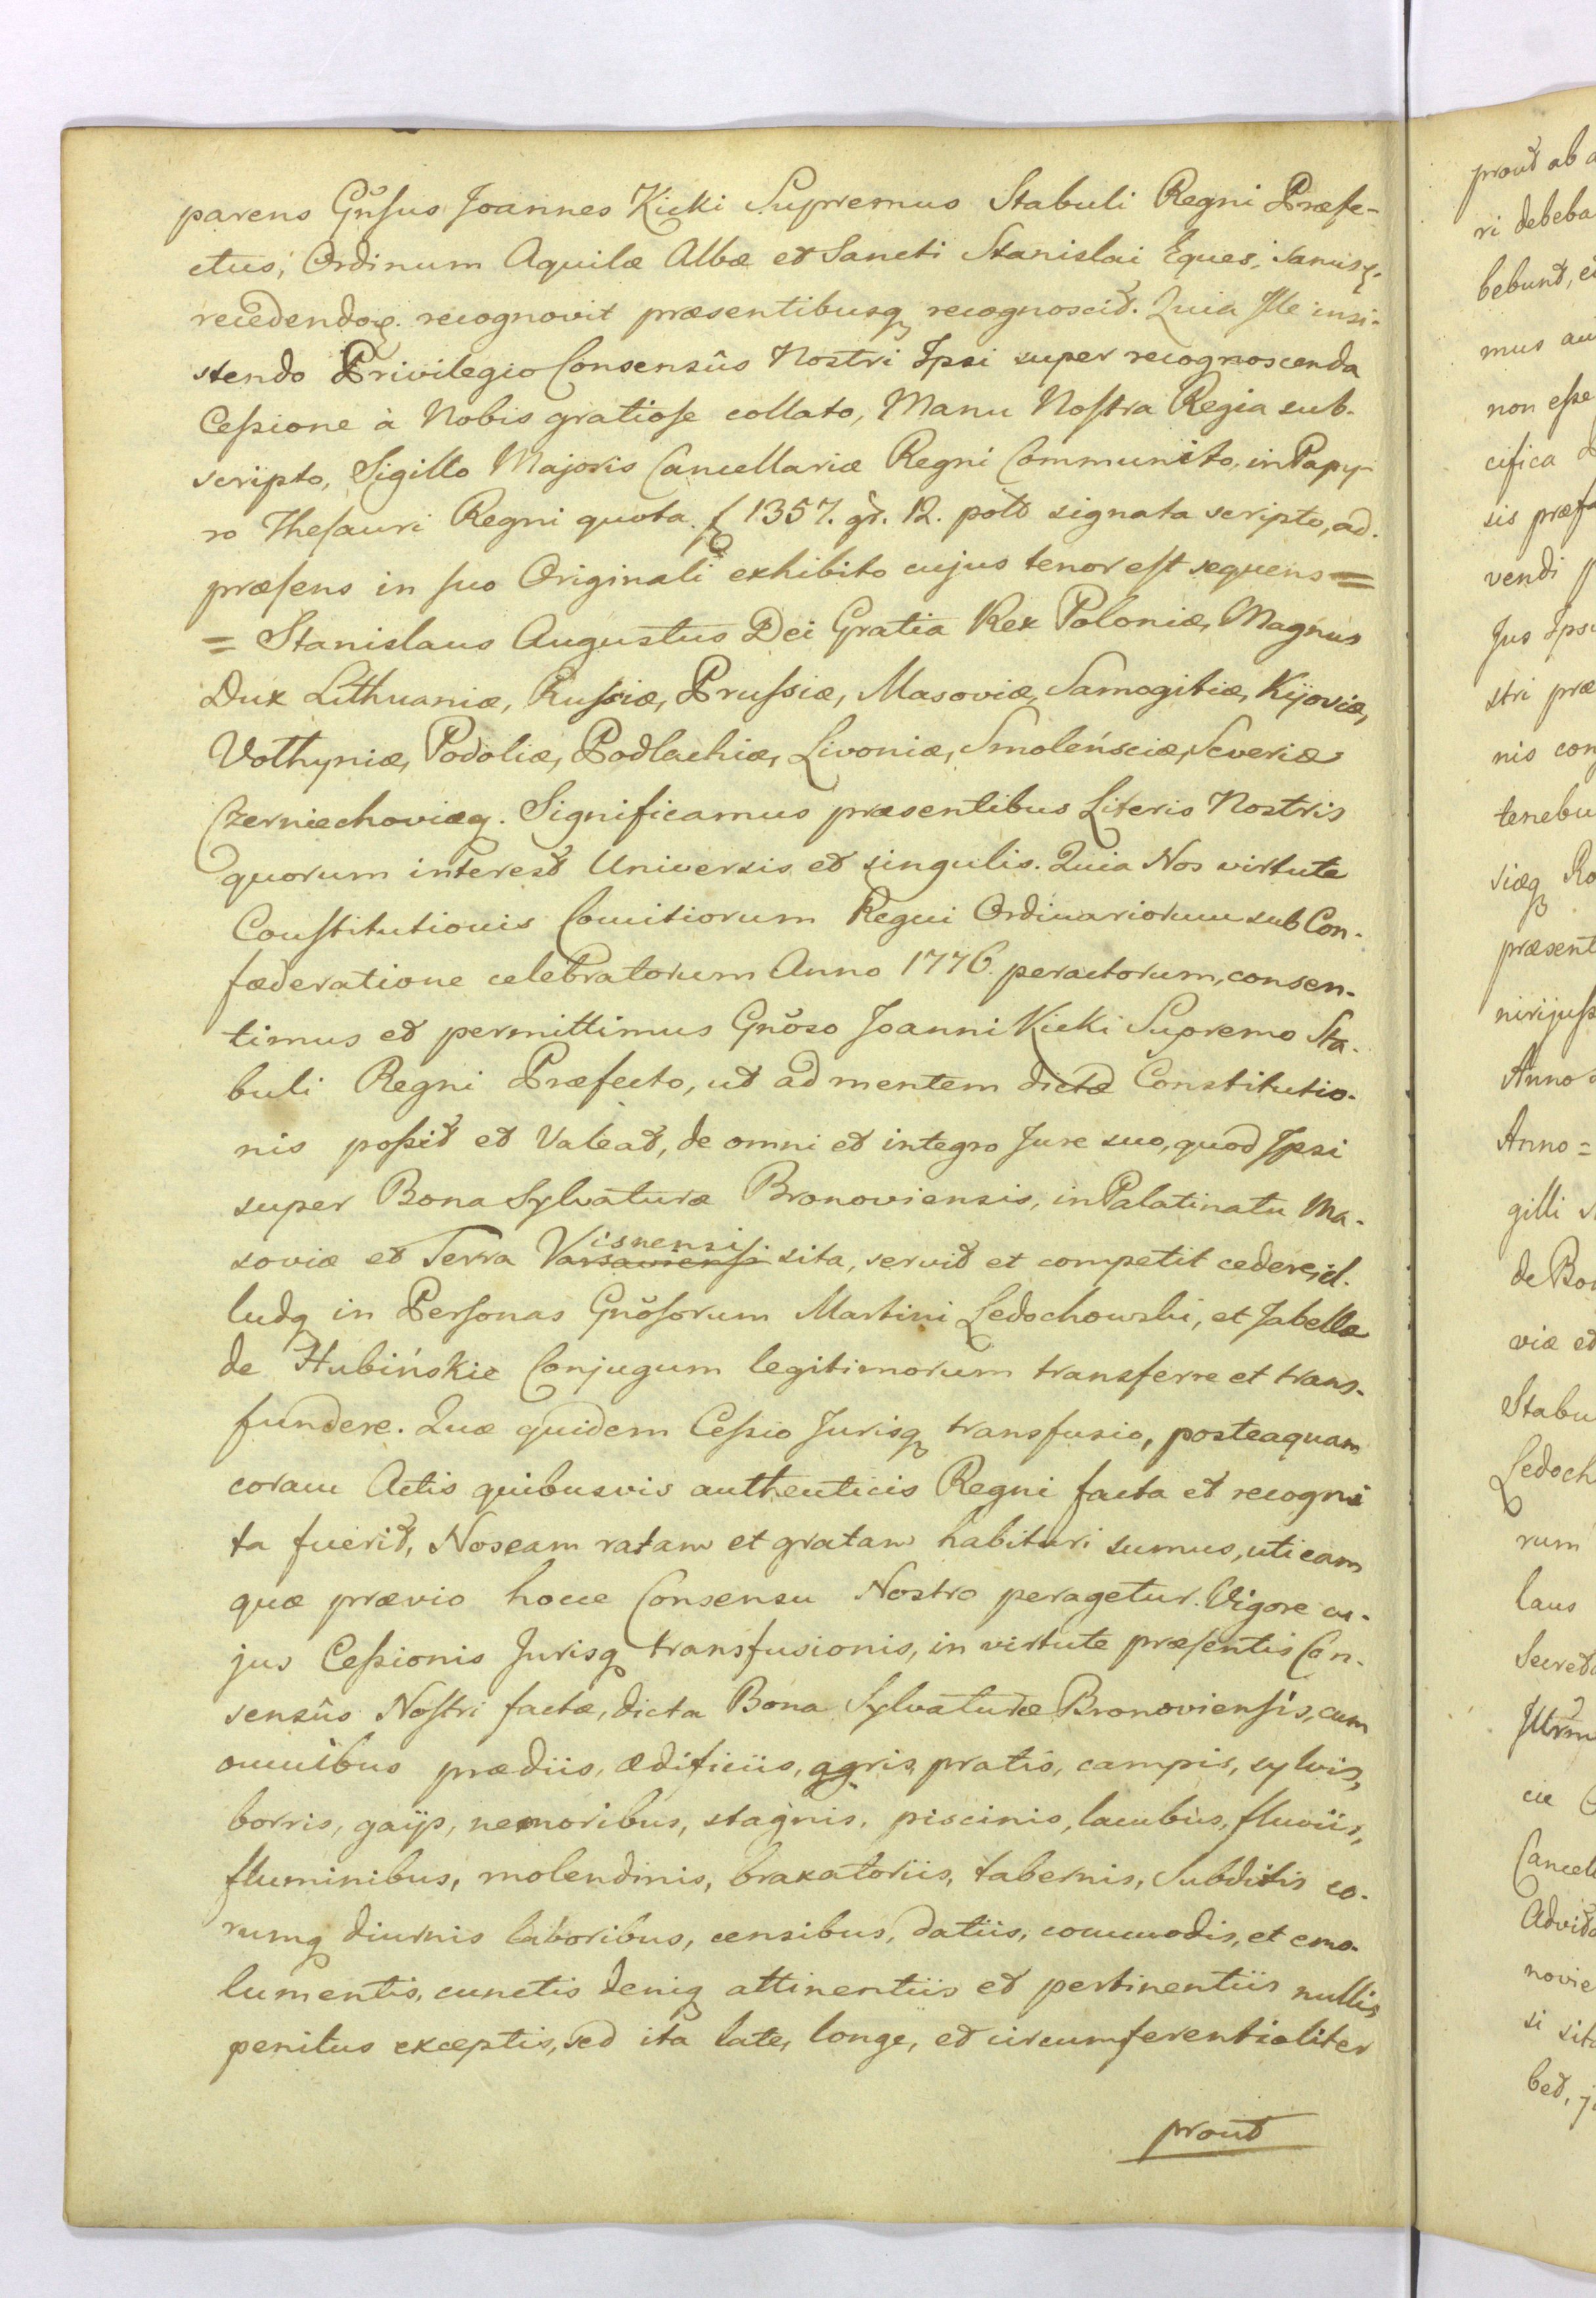 parens Gn̄sus Joannes Kicki Supremus Stabuli Regni Præfe-
ctus, Ordinum Aquilæ Albæ et Sancti Stanislai Eques, sanusq.
recedendoq. recognovit præsentibusq recognoscit. Quia Ille insi-
stendo Privilegio Consensûs Nostri Ipsi super recognoscenda
Cessione à Nobis gratiose collato, Manu Nostra Regia sub-
scripto, Sigillo Majoris Cancellariæ Regni Communito, in Papy-
ro Thesauri Regni quota f 1357. gr. 12. pold signata scripto, ad-
præsens in suo Originali exhibito cujus tenor est sequens =
= Stanislaus Augustus Dei Gratia Rex Poloniæ, Magnus
Dux Lithuaniæ, Russiæ, Prussiæ, Masoviæ, Samogitiæ, Kijoviæ,
Volhyniæ, Podoliæ, Podlachiæ, Livoniæ, Smoleńsciæ, Severiæ
Czerniechoviæq. Significamus præsentibus Literis Nostris
quorum interest Universis et singulis. Quia Nos virtute
Constitutionis Comitiorum Regni Ordinariorum sub Con-
fœderatione celebratorum Anno 1776. peractorum, consen-
timus et permittimus Gnōso Joanni Kicki Supremo Sta-
buli Regni Præfecto, ut ad mentem dictæ Constitutio-
nis possit et valeat, de omni et integro Jure suo, quod Ipsi
super Bona Sylvaturæ Bronoviensis, in Palatinatu Ma-
isnensi
soviæ et Terra Varsaviensi sita, servit et competit cedere, il-
ludq in Personas Gnōsorum Martini Ledochowski, et Isabellæ
de Hubińskie Conjugum legitimorum transferre et trans-
fundere. Quæ quidem Cessio Jurisq transfusio, posteaquam
coram Actis quibusvis authenticis Regni facta et recogni
ta fuerit, Nos eam ratam et gratam habituri sumus, uti eam
quæ prævio hocce Consensu Nostro peragetur. Vigore cu-
jus Cessionis Jurisq transfusionis, in virtute præsentis Con-
sensûs Nostri factæ, dicta Bona Sylvaturæ Bronoviensis, cum
omnibus prædiis, ædificiis, agris, pratis, campis, sylvis,
borris, gaijs, nemoribus, stagnis, piscinis, lacubus, fluviis,
fluminibus, molendinis, braxatoriis, tabernis, Subditis eo-
rumq diurnis laboribus, censibus, datiis, commodis, et emo-
lumentis, cunctis deniq attinentiis et pertinentiis nullis
penitus exceptis, sed ita late, longe, et circumferentialiter
prout
prout ab a
ri debeba
bebunt, e
mus au
non esse
cifica
sis præfa
vendi
Jus Ipsi
stri præ
nis con
tenebu
siæq Ro
præsent
nirijuss
Anno
Anno =
gilli
de Bo
viæ et
Stabu
Ledoch
rum
laus
Secret
cie
Cancel
Advit
novie
si sit
bet, j